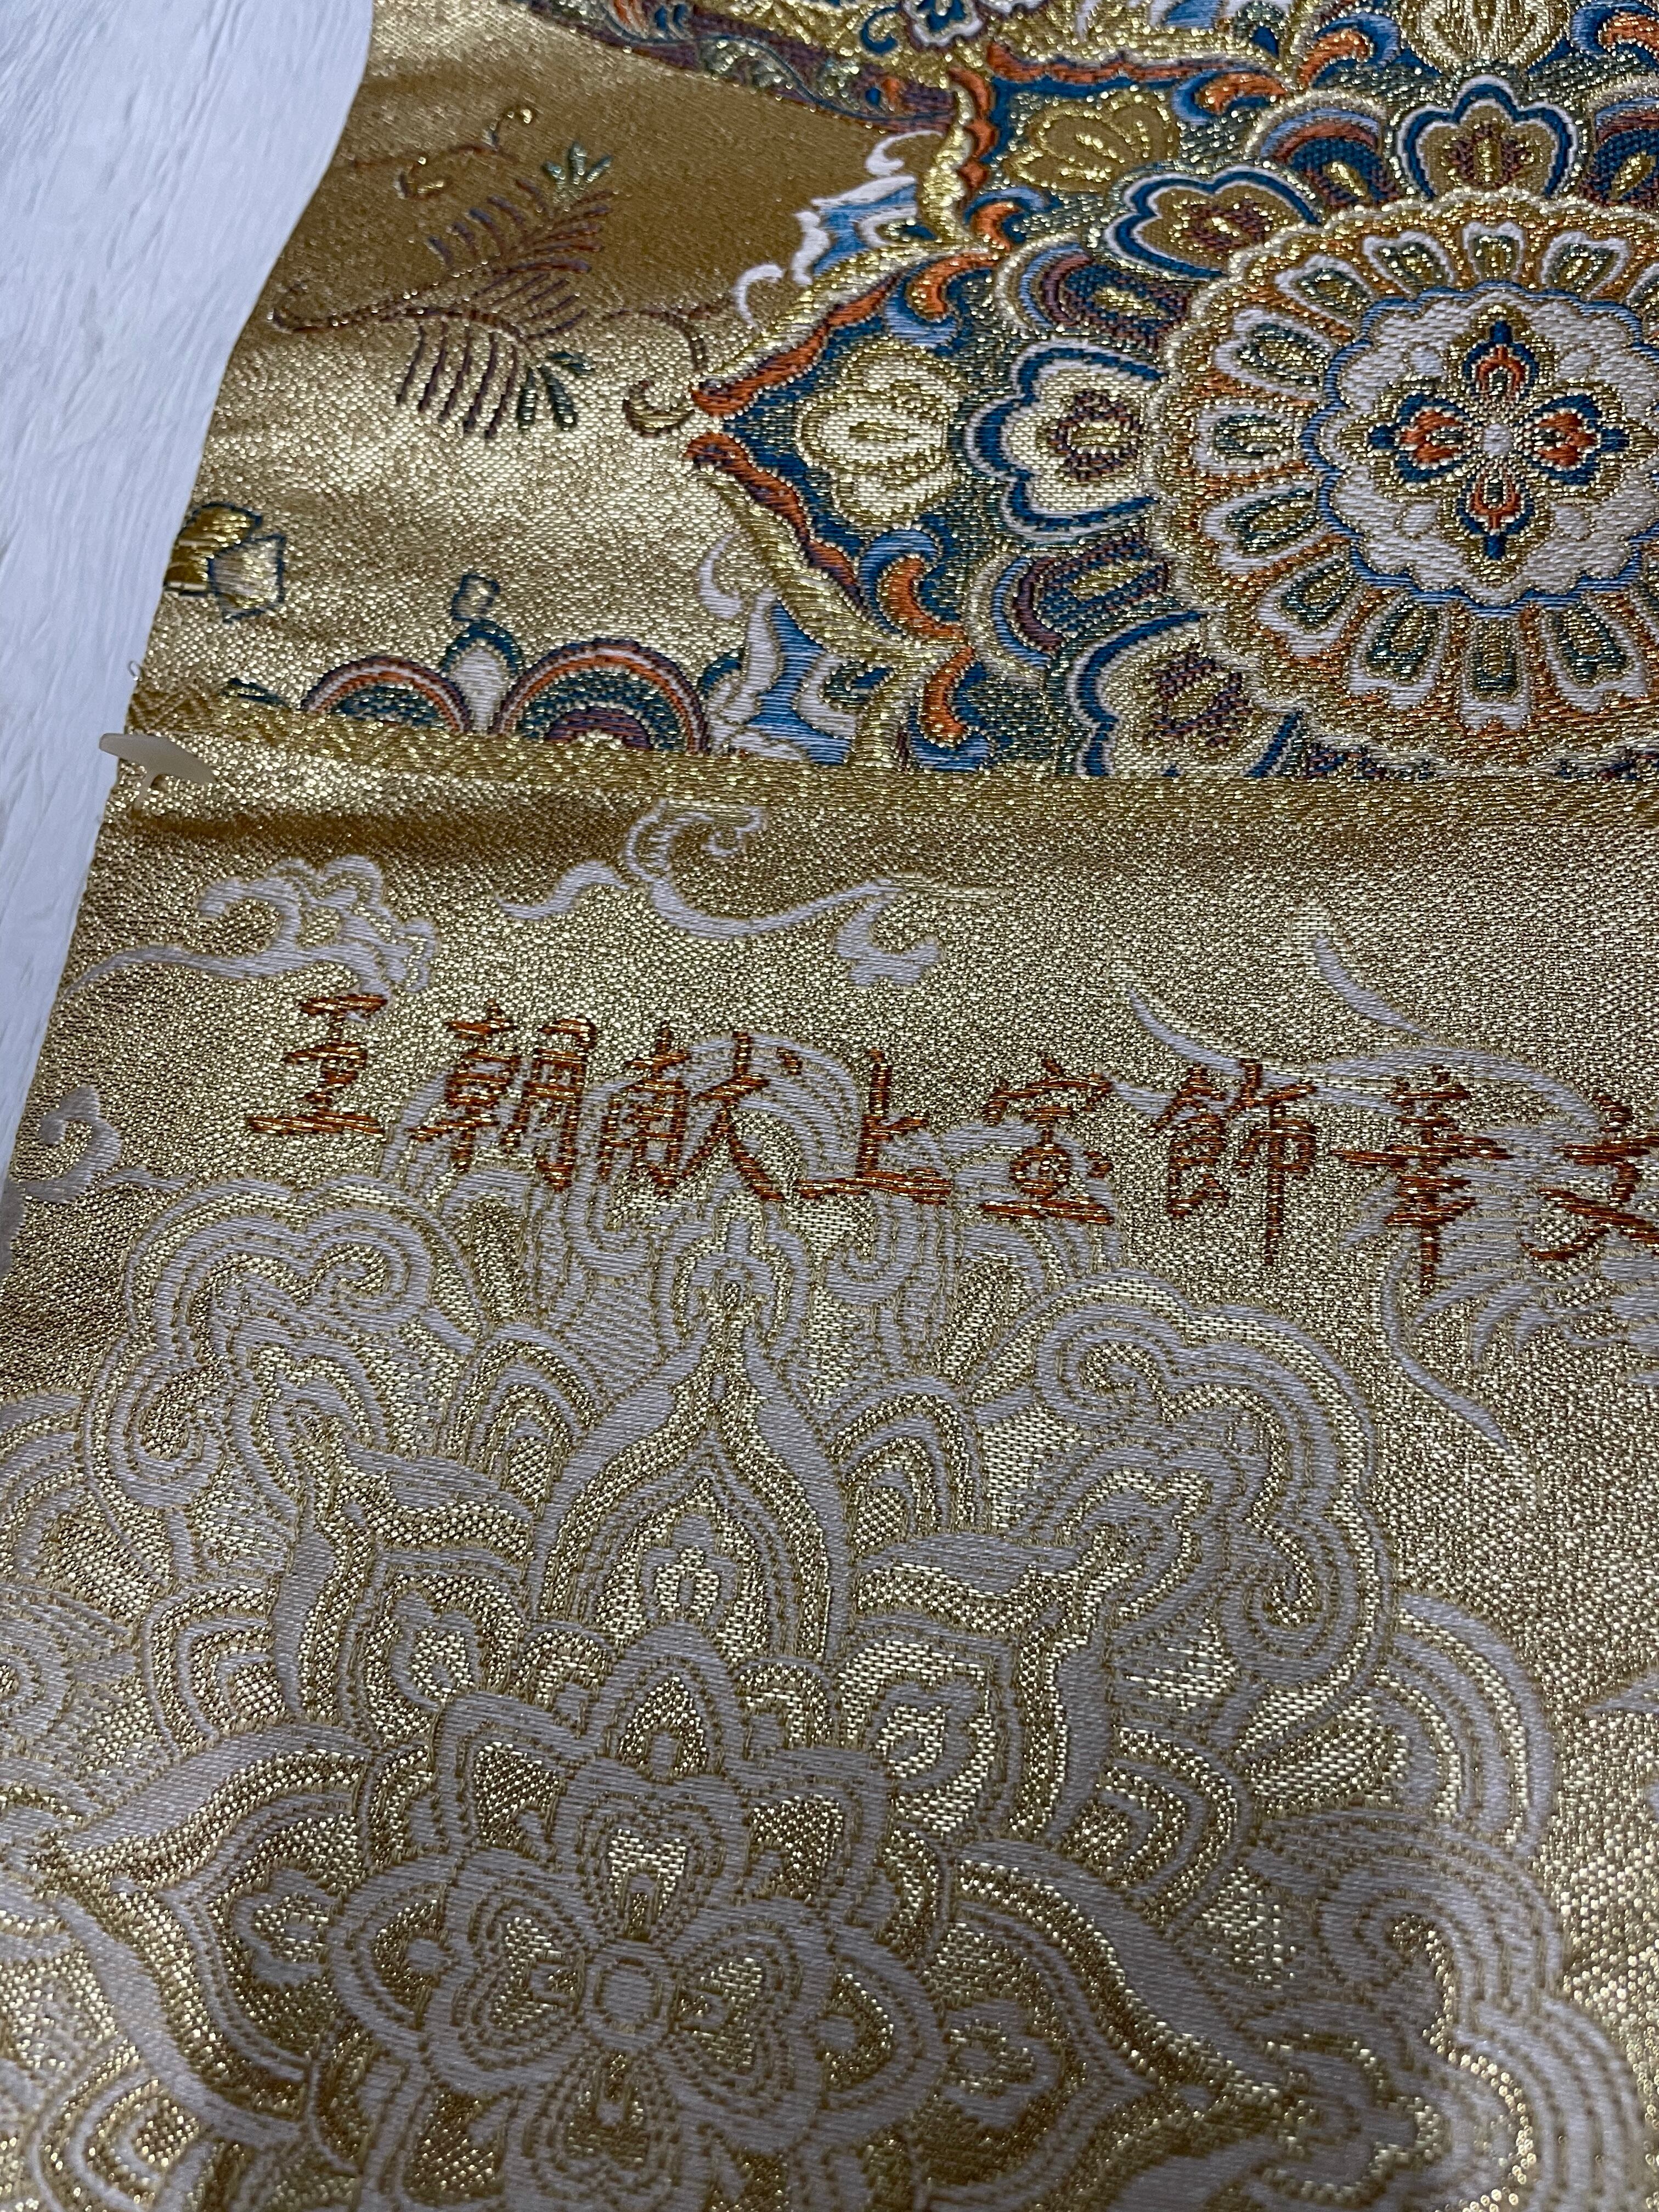 王朝献上宝飾華文